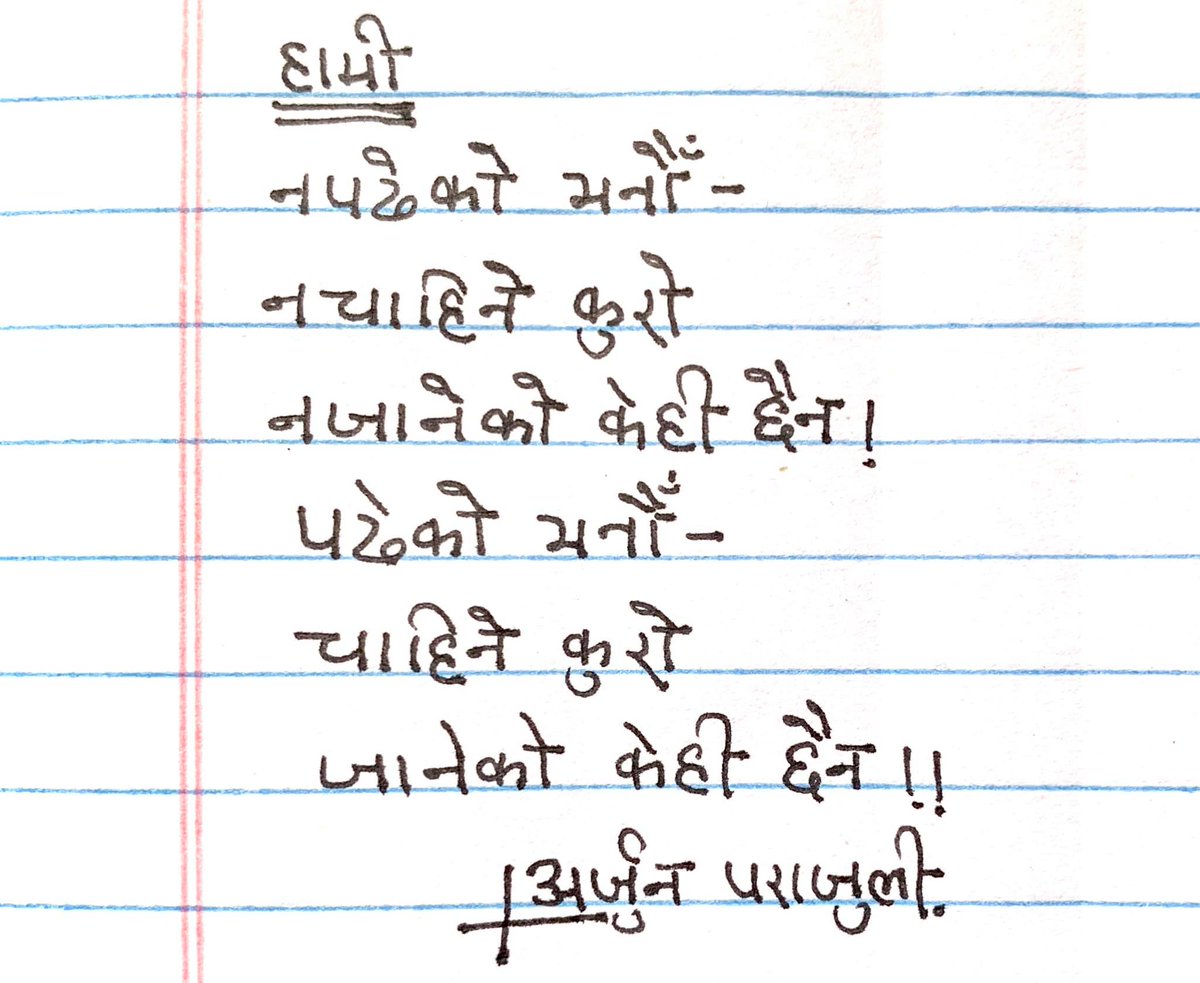 हामी
नपढेको भनौँ-
नचाहिने कुरो
नजानेको केही छैन!
पढेको भनौँ-
चाहिने कुरो
जानेको केही छैन!!
अर्जुन पराजुली.